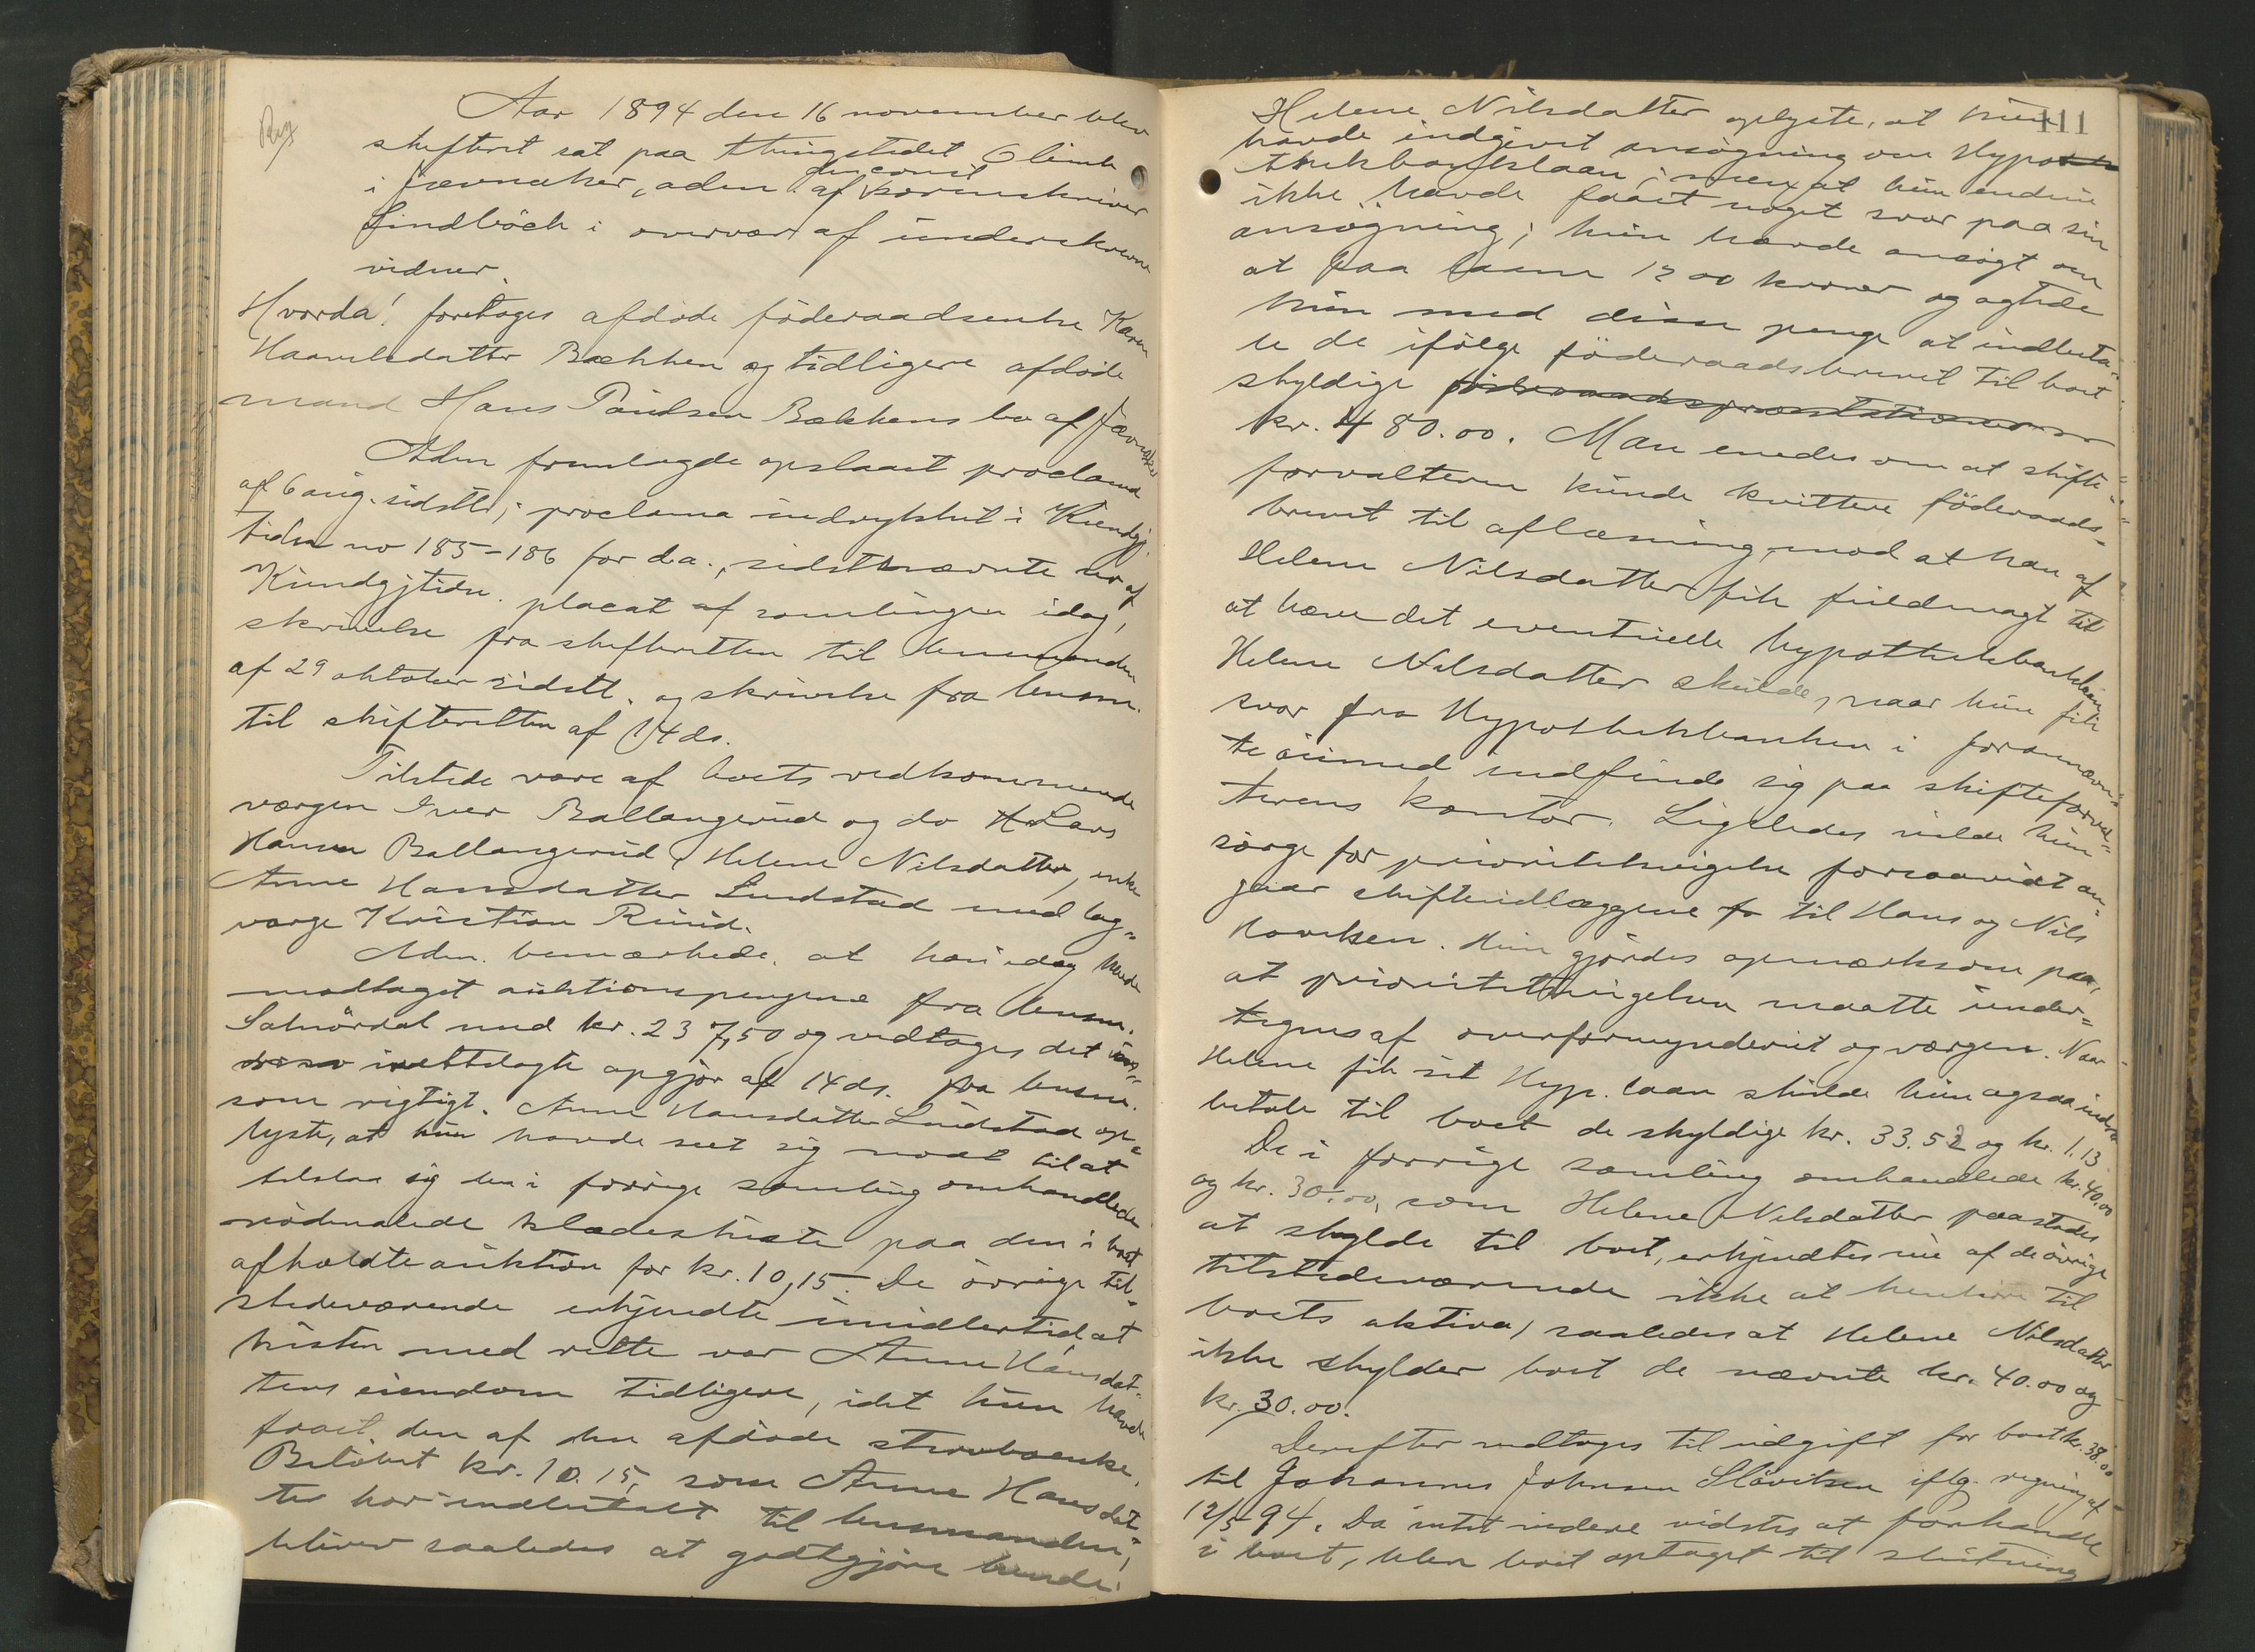 Reg
Aar 1894 den 16 november blev
skifteret sat paa thingstedet Olimb
i Jævnaker, adm. af den const. sorenskriver
Lindböck i overvær af underskrevne
vidner.
Hvorda! foretoges afdøde föderaadsenke Karen
Haavelsdatter Bækken og tidligere afdöde
mand Hans Paulsen Bækkens bo af Jævnaker
Adm fremlagde opslaaet proclama
af 6 aug. sidstl; proclama indrykket i Kundgj.
tidn no 185-186 for d.a., sidstnævnte nr af
Kundgjtidn. placat af samlingen idag,
skrivelse fra skifteretten til lensmanden
af 29 oktober sidstl. og skrivelse fra lensm.
til skifteretten af 14 ds.
Tilstede vare af boets vedkommende
værgen Iver Ballangrud og do Lars
Hansen Ballangerud, Helene Nilsdatter, enke
Anne Hansdatter Lundstad med lag-
værge Kristian Ruud.
Adm. bemærkede, at han idag havde
modtaget auktionspengene fra lensm.
med kr. 237,50 og vedtoges det
irettelagte opgjör af 14 ds. fra lensm.
som rigtigt. Anne Hansdatter Lundstad op-
lyste, at hun havde seet sig nødt til at
tilslaa sig den i forrige samling omhandlede
rödmalede klædeskiste paa den i boet
afholdte auktion for kr. 10,15. De övrige til-
stedeværende erkjendte imidlertid at
kisten med rette var Anne Hansdat-
ters eiendom tidligere, idet hun havde
faaet den af den afdöde stervboenke.
Belöbet kr. 10.15, som Anne Hansdat-
ter har indbetalt til lensmanden,
bliver saaledes at godtgjöre hende.
111
Helene Nilsdatter oplyste, at hun
havde indgivet ansögning om Hypo
thekbanklaan; men at hun endnu
ikke havde faaet noget svar paa sin
ansögning; hun havde ansögt om
at faa laane 1200 kroner og agtede
hun med disse penge at indbeta-
le de ifölge föderaadsbrevet til boet
skyldige
kr. 480.00. Man enedes om at skifte-
forvalteren kunde kvittere föderaads-
brevet til aflæsning, mod at han af
Helene Nilsdatter fik fuldmagt til
at hæve det eventuelle hypothekbanklaan
Helene Nilsdatter skulde, naar hun fik
svar fra Hypothekbanken i forannævn-
te öiemed indfinde sig paa skifteforval-
terens kontor. Ligeledes vilde hun
sörge for prioritetsvigelse forsaavidt an-
gaar skifteudlæggene til Hans og Nils
Hovelsen. Hun gjördes opmærksom paa,
at prioritetsvigelsen maatte under-
tegnes af overformynderiet og værgen. Naar
Helene fik sit Hyp. laan skulde hun ogsaa ind
betale til boet de skyldige kr. 33.52 og kr. 1.13
De i forrige samling omhandlede kr. 40.00
og kr. 30.00, som Helene Nilsdatter paastodes
at skylde til boet, erkjendtes nu af de övrige
tilstedeværende ikke at henhöre til
boets aktiva, saaledes at Helene Nilsdatter
ikke skylder boet de nævnte kr. 40.00 og
kr. 30.00.
Derefter vedtoges til udgift for boet kr. 38.00
til Johannes Johnsen iflg. regning af
12/5 94. Da intet videre vidstes at forhandle
i boet, blev boet optaget til slutning